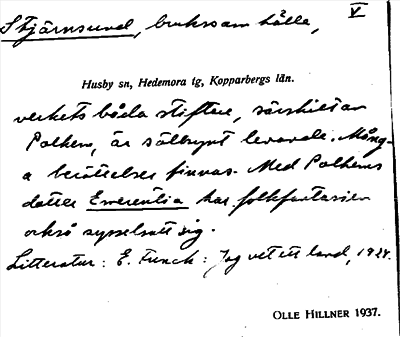 Stjärnsund, brukssamhälle, V
Husby sn, Hedemora tg, Kopparbergs län.
verkets båda stiftare, särskilt av
Polhem, är sällsynt levande. Mång-
a berättelser finnas. Med Polhems
dotter Emerentia har folkfantasien
också sysselsatt sig.
Litteratur: E. Funck: Jag vet ett land, 1924.
OLLE HILLNER 1937.